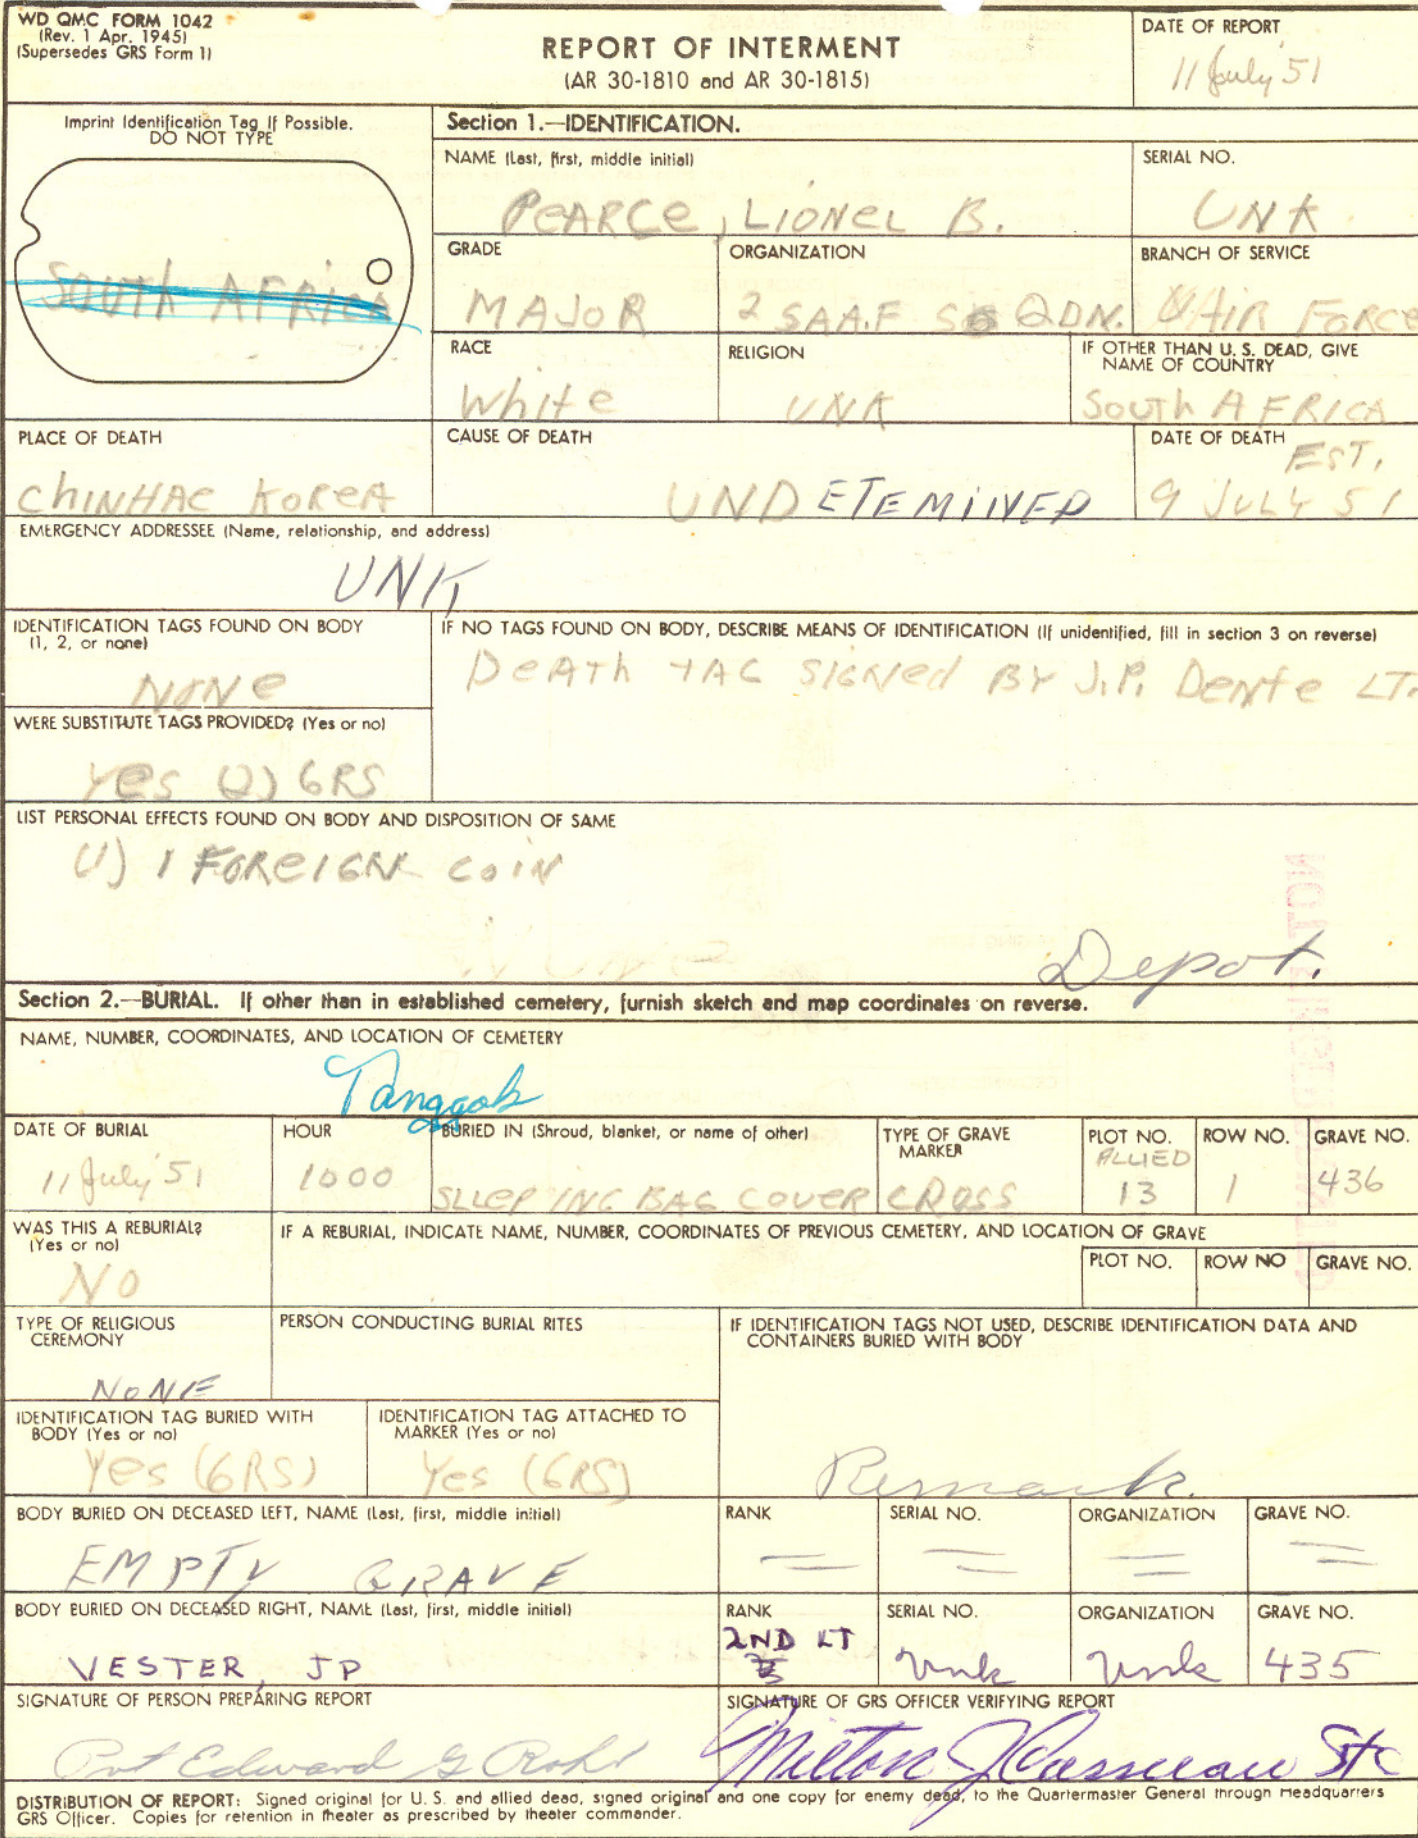 WD QMC FORM 1042
(Rev. 1 Apr. 1945)
(Supersedes GRS Form 1)
REPORT OF INTERMENT
(AR 30-1810 and AR 30-1815)
DATE OF REPORT
11 July '51
Imprint Identification Tag If Possible.
DO NOT TYPE
SOUTH AFRICA
Section 1.—IDENTIFICATION.
NAME (Last, first, middle initial)
PEARCE, LIONEL B.
SERIAL NO.
UNK
GRADE
MAJOR
ORGANIZATION
2 SAAF SQDN.
BRANCH OF SERVICE
AIR FORCE
RACE
White
RELIGION
UNK
IF OTHER THAN U. S. DEAD, GIVE
NAME OF COUNTRY
South AFRICA
PLACE OF DEATH
ChINHAE KOREA
CAUSE OF DEATH
UNDETEMINED
DATE OF DEATH
EST.
9 JULY 51
EMERGENCY ADDRESSEE (Name, relationship, and address)
UNK
IDENTIFICATION TAGS FOUND ON BODY
(1, 2, or none)
NONE
IF NO TAGS FOUND ON BODY, DESCRIBE MEANS OF IDENTIFICATION (If unidentified, fill in section 3 on reverse)
DEATH TAG SIGNED BY J.P. Dente LT.
WERE SUBSTITUTE TAGS PROVIDED? (Yes or no)
Yes (2) GRS
LIST PERSONAL EFFECTS FOUND ON BODY AND DISPOSITION OF SAME
(1) 1 FOREIGN COIN
Depot.
Section 2.—BURIAL. If other than in established cemetery, furnish sketch and map coordinates on reverse.
NAME, NUMBER, COORDINATES, AND LOCATION OF CEMETERY
Tanggok
DATE OF BURIAL
11 July '51
HOUR
1000
BURIED IN (Shroud, blanket, or name of other)
SLLEPING BAG COVER
TYPE OF GRAVE
MARKER
CROSS
PLOT NO.
ALLIED
13
ROW NO.
1
GRAVE NO.
436
WAS THIS A REBURIAL?
(Yes or no)
NO
IF A REBURIAL, INDICATE NAME, NUMBER, COORDINATES OF PREVIOUS CEMETERY, AND LOCATION OF GRAVE
PLOT NO.
ROW NO
GRAVE NO.
TYPE OF RELIGIOUS
CEREMONY
NONE
PERSON CONDUCTING BURIAL RITES
IF IDENTIFICATION TAGS NOT USED, DESCRIBE IDENTIFICATION DATA AND
CONTAINERS BURIED WITH BODY
Remark.
IDENTIFICATION TAG BURIED WITH
BODY (Yes or no)
Yes (GRS)
IDENTIFICATION TAG ATTACHED TO
MARKER (Yes or no)
Yes (GRS)
BODY BURIED ON DECEASED LEFT, NAME (Last, first, middle initial)
EMPTY GRAVE
RANK
SERIAL NO.
ORGANIZATION
GRAVE NO.
BODY BURIED ON DECEASED RIGHT, NAME (Last, first, middle initial)
VESTER, JP
RANK
2ND LT
SERIAL NO.
Unk
ORGANIZATION
Unk
GRAVE NO.
435
SIGNATURE OF PERSON PREPARING REPORT
Pvt Edward G Rohr
SIGNATURE OF GRS OFFICER VERIFYING REPORT
Milton J
DISTRIBUTION OF REPORT: Signed original for U. S. and allied dead, signed original and one copy for enemy dead, to the Quartermaster General through Headquarters
GRS Officer. Copies for retention in theater as prescribed by theater commander.